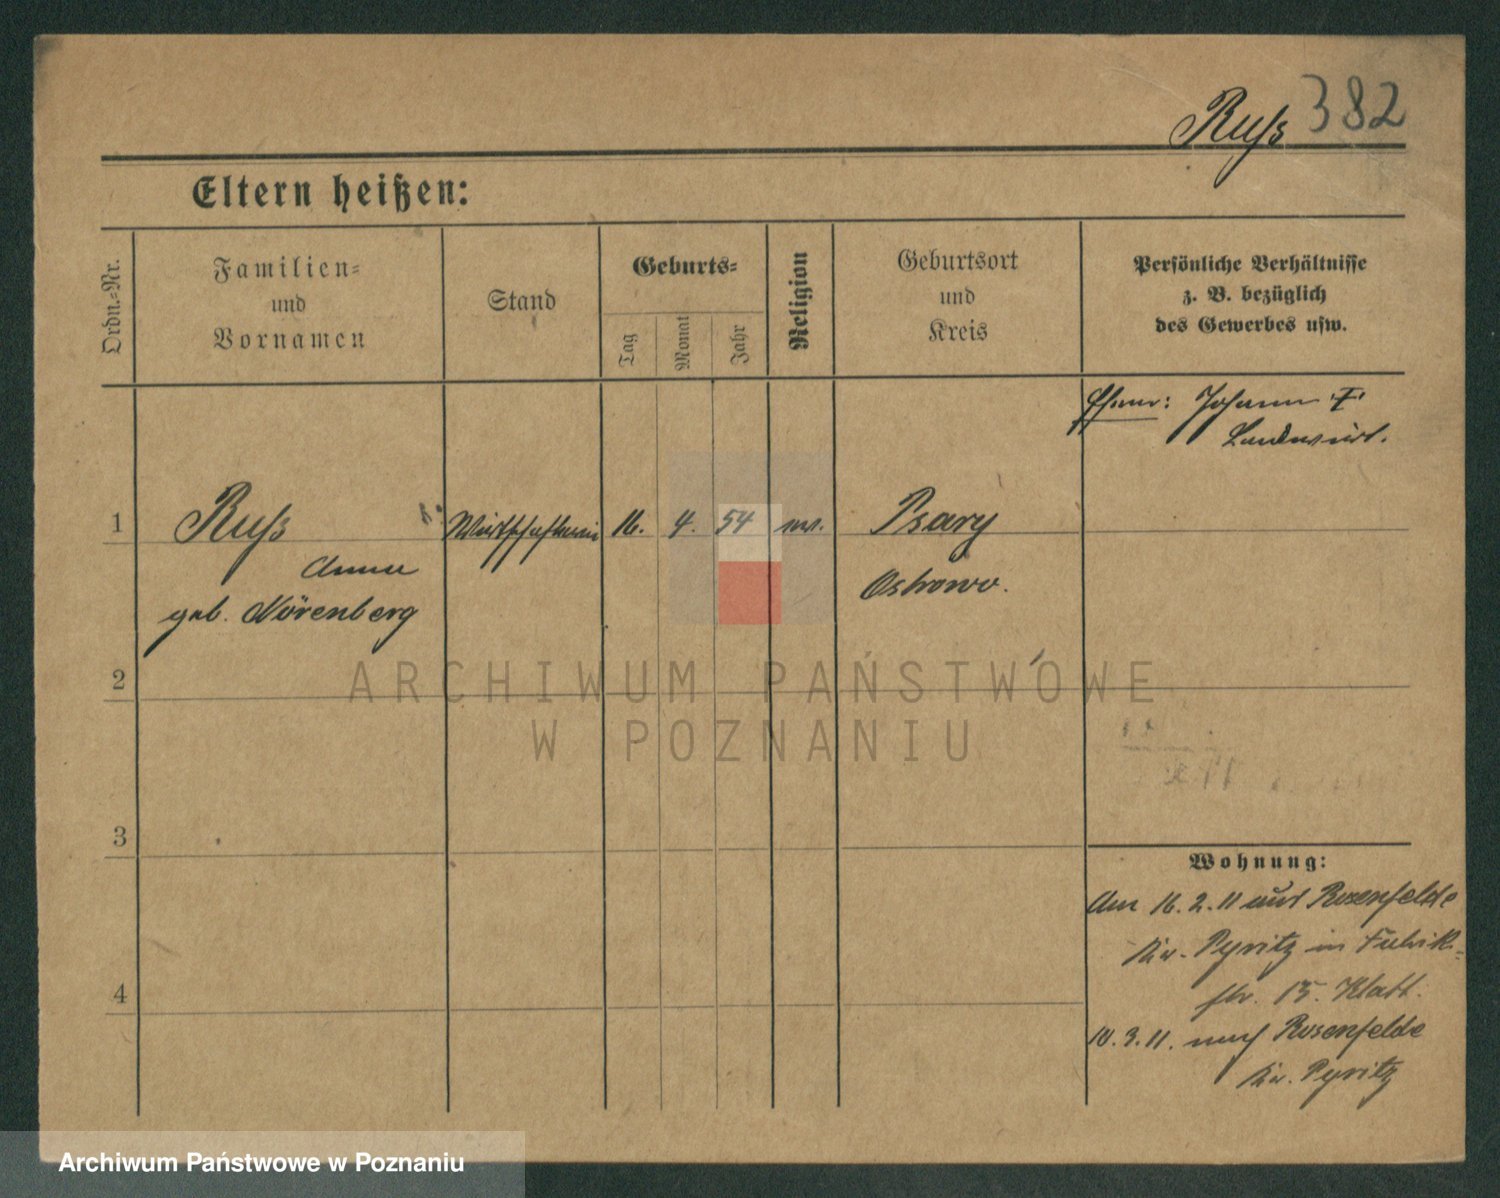 Ruß 382
Eltern heißen:
Ordn.-Nr.
Familien-
und
Vornamen
Stand
Geburts-
Tag
Monat
Jahr
Religion
Geburtsort
und
Kreis
Persönliche Verhältnisse
z. B. bezüglich
des Gewerbes usw.
Johann
Landwirt.
1 Ruß 16. 4. 54 Psary
Anna Ostrowo.
geb. Nörenberg
2
3
4
Wohnung:
Am 16. 2. 11 aus Rosenfelde
Kr. Pyritz in Fabrik-
str. 15. Klatt.
10. 3. 11. nach Rosenfelde
Kr. Pyritz
ARCHIWUM PAŃSTWOWE
W POZNANIU
Archiwum Państwowe w Poznaniu